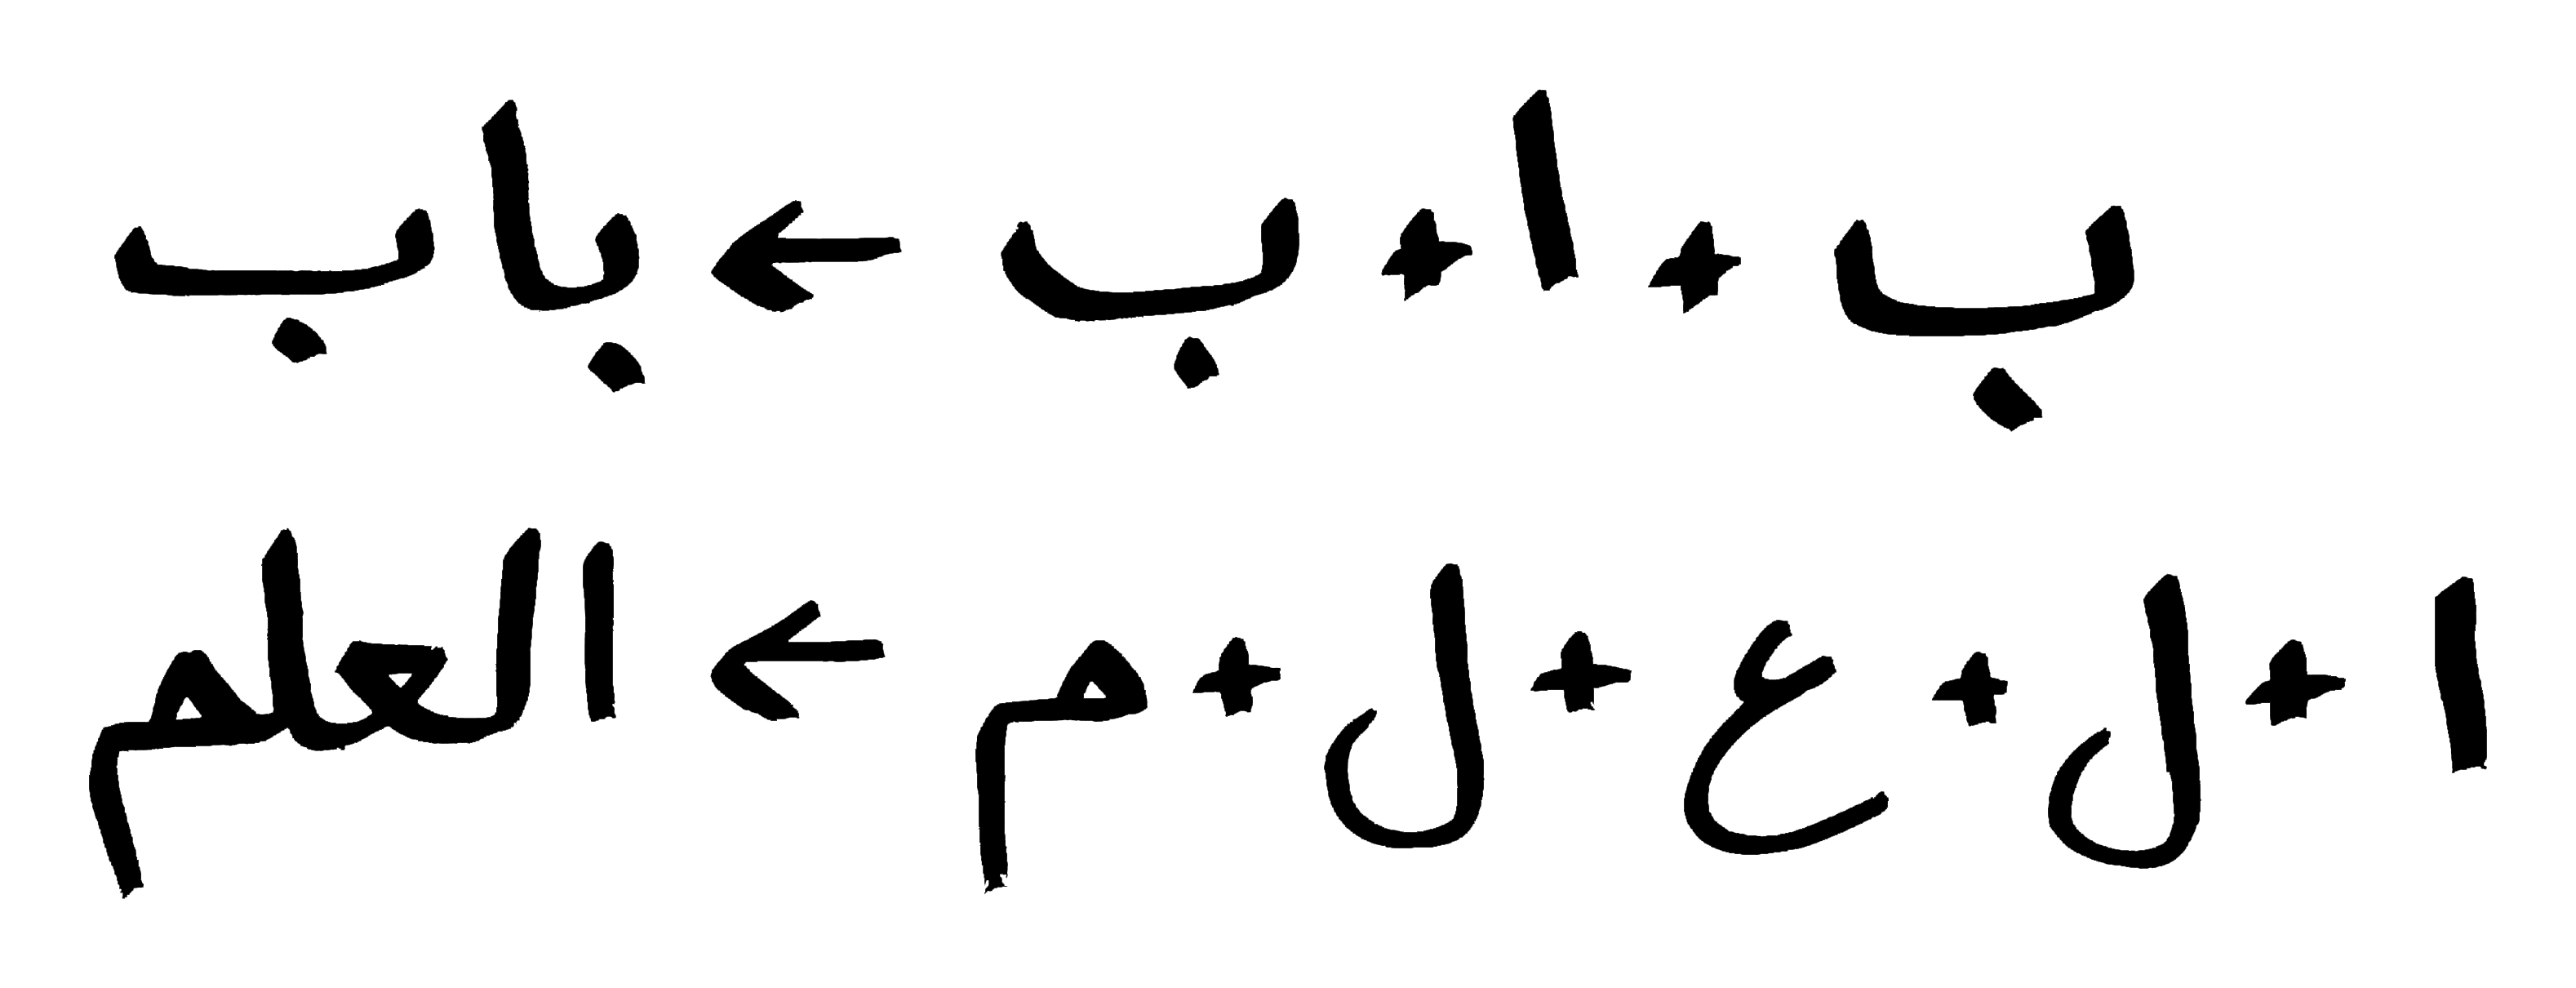 ب + ا + ب ← باب
ا + ل + ع + ل + م ← العلم